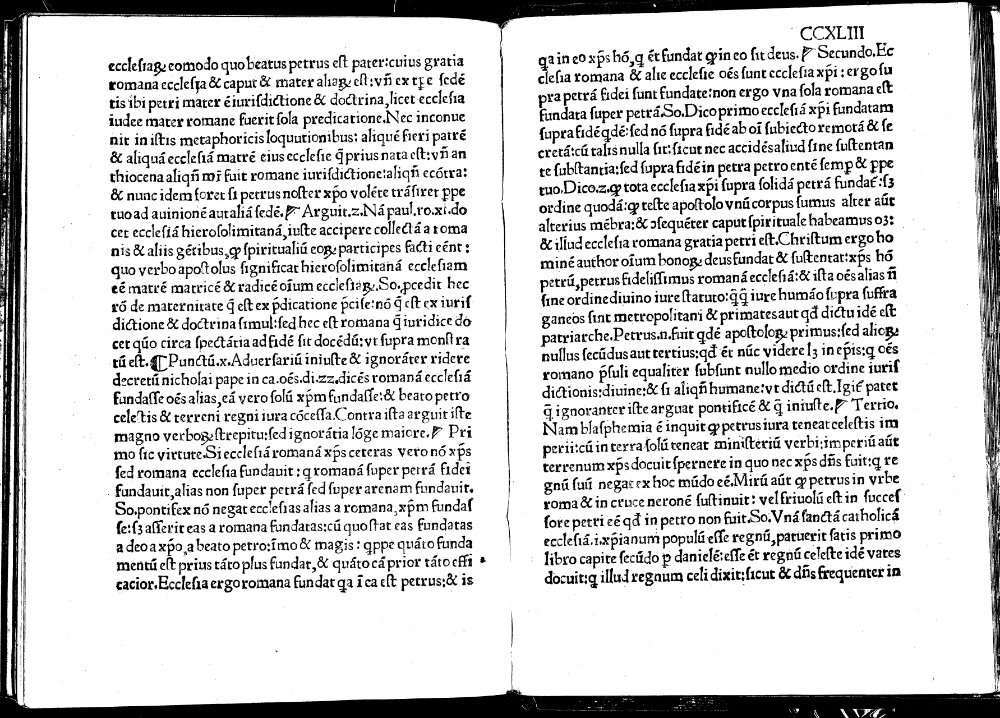 ecclesiaꝝ eomodo quo beatus petrus est pater: cuius gratia
romana ecclesia & caput & mater aliaꝝ est: vñ ex
tis ibi petri mater ē iurisdictione & doctrina, licet ecclesia
iudee mater romane fuerit sola predicatione. Nec inconue
nit in istis metaphoricis loquutionibus: aliquē fieri patrē
& aliquā ecclesiā matrē eius ecclesie q̄ prius nata est: vñ an
thiocena aliqñ mr̄ fuit romane iurisdictione: aliqñ ecōtra:
& nunc idem foret si petrus noster xp̄o volēte trāsiret ꝑpe
tuo ad auinionē aut aliā sedē. Arguit. z. Nā paul. ro. xi. do
cet ecclesiā hierosolimitanā, iuste accipere collectā a roma
nis & aliis gētibus, ꝙ spiritualiū eoꝝ participes facti cēnt:
quo verbo apostolus significat hierosolimitanā ecclesiam
eē matrē matricē & radicē oīum ecclesiaꝝ. So. ꝓcedit hec
rō de maternitate q̄ est ex p̄dicatione p̄cise: nō q̄ est ex iuris
dictione & doctrina simul: sed hec est romana q̄ iuridice do
cet quo circa spectātia ad fidē sit docēdū: vt supra monstra
tū est. ¶ Punctū. x. Aduersariū iniuste & ignorāter ridere
decretū nicholai pape in ca. oēs. di. zz. dicēs romanā ecclesiā
fundasse oēs alias, eā vero solū xp̄m fundasse: & beato petro
celestis & terreni regni iura cōcessa. Contra ista arguit iste
magno verboꝝ strepitu: sed ignorātia lōge maiore. Pri
mo sic virtute. Si ecclesiā romanā xp̄s ceteras vero nō xp̄s
sed romana ecclesia fundauit: ꝗ romanā super petrā fidei
fundauit, alias non super petrā sed super arenam fundauit.
So. pontifex nō negat ecclesias alias a romana, xp̄m fundas
se: sꝫ asserit eas a romana fundatas: cū quo stat eas fundatas
a deo a xp̄o, a beato petro: īmo & magis: qppe quāto funda
mentū est prius tāto plus fundat, & quāto cā prior tāto effi
cacior. Ecclesia ergo romana fundat ꝗa ī ca est petrus: & is
CCXLIII
ꝗa in eo xp̄s hō, ꝗ ēt fundat ꝙ in eo sit deus. Secundo. Ec
clesia romana & alie ecclesie oēs sunt ecclesia xp̄i: ergo su
pra petrā fidei sunt fundate: non ergo vna sola romana est
fundata super petrā. So. Dico primo ecclesiā xp̄i fundatam
supra fidē qdē: sed nō supra fidē ab oī subiecto remotā & se
cretā: cū talis nulla sit: sicut nec accidēs aliud sine sustentan
te substantia: sed supra fidē in petra petro entē semꝑ & ꝑpe
tuo. Dico. z. ꝙ tota ecclesia xp̄i supra solidā petrā fundat̄: sꝫ
ordine quodā: ꝙ teste apostolo vnū corpus sumus alter aūt
alterius mēbra: & ↄsequēter caput spirituale habeamus oꝫ:
& illud ecclesia romana gratia petri est. Christum ergo ho
minē author oīum bonoꝝ deus fundat & sustentat: xp̄s hō
petrū, petrus fidelissimus romanā ecclesiā: & ista oēs alias ñ
sine ordine diuino iure statuto: q̄q̄ iure humāo supra suffra
ganeos sint metropolitani & primates aut qđ dictu idē est
patriarche. Petrus. n. fuit qdē apostoloꝝ primus: sed alioꝝ
nullus secūdus aut tertius: qđ ēt nūc videre lꝫ in ep̄is: ꝗ oēs
romano p̄suli equaliter subsunt nullo medio ordine iuris
dictionis: diuine: & si aliqñ humane: vt dictū est. Igit̄ patet
q̄ ignoranter iste arguat pontificē & q̄ iniuste. Tertio.
Nam blasphemia ē inquit ꝙ petrus iura teneat celestis im
perii: cū in terra solū teneat ministeriū verbi: imperiū aūt
terrenum xp̄s docuit spernere in quo nec xp̄s dñs fuit: ꝗ re
gnū suū negat ex hoc mūdo eē. Mirū aūt ꝙ petrus in vrbe
roma & in cruce neronē sustinuit: vel friuolū est in succes
sore petri eē qđ in petro non fuit. So. Vnā sanctā catholicā
ecclesiā. i. xp̄ianum populū esse regnū, patuerit satis primo
libro capite secūdo ꝑ danielē: esse ēt regnū celeste idē vates
docuit: ꝗ illud regnum celi dixit: sicut & dñs frequenter in